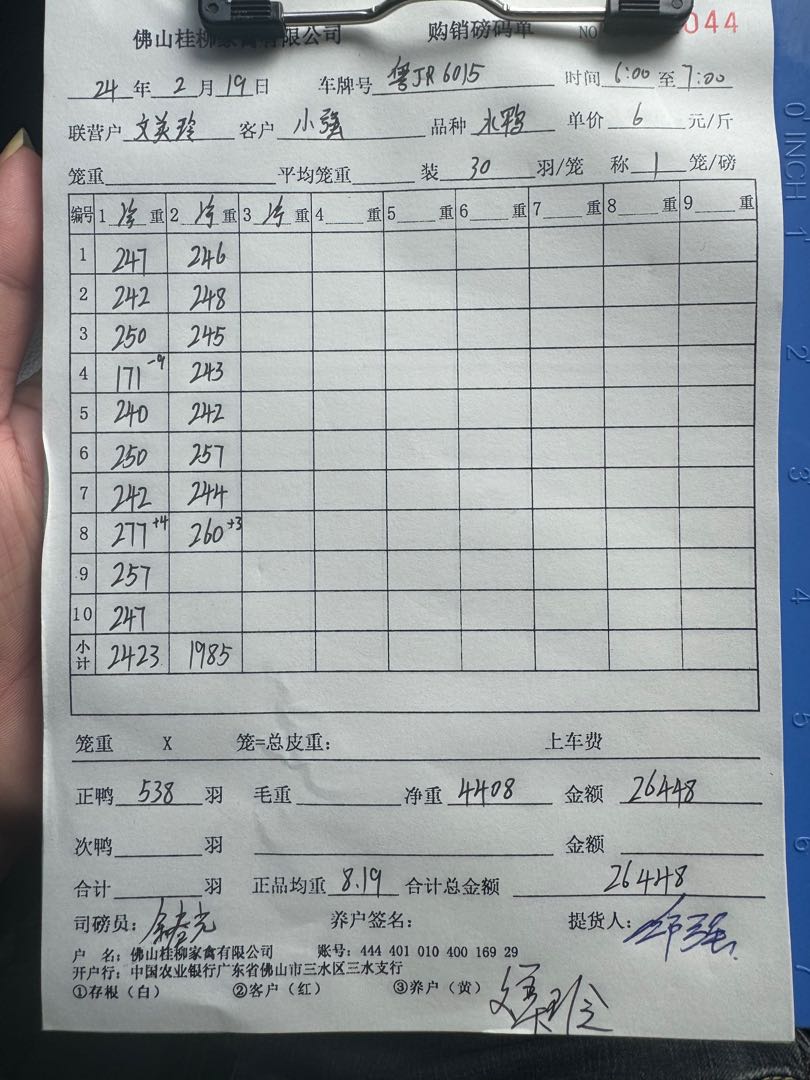 佛山桂柳家禽有限公司 购销磅码单 NO 044
24 年 2 月 19 日 车牌号 粤JR6015 时间 6:00 至 7:00
联营户 文美玲 客户 小强 品种 水鸭 单价 6 元/斤
笼重 平均笼重 装 30 羽/笼 称 1 笼/磅
编号 1 净 重 2 净 重 3 净 重 4 重 5 重 6 重 7 重 8 重 9 重
1 247 246
2 242 248
3 250 245
4 171 -9 243
5 240 242
6 250 257
7 242 244
8 277 +4 260 +3
9 257
10 247
小计 2423 1985
笼重 X 笼=总皮重: 上车费
正鸭 538 羽 毛重 净重 4408 金额 26448
次鸭 羽 金额
合计 羽 正品均重 8.19 合计总金额 26448
司磅员: 养户签名: 提货人:
户 名: 佛山桂柳家禽有限公司 账号: 444 401 010 400 169 29
开户行: 中国农业银行广东省佛山市三水区三水支行
①存根(白) ②客户(红) ③养户(黄) 文美玲
0 INCH 1 2 3 4 5 6 7